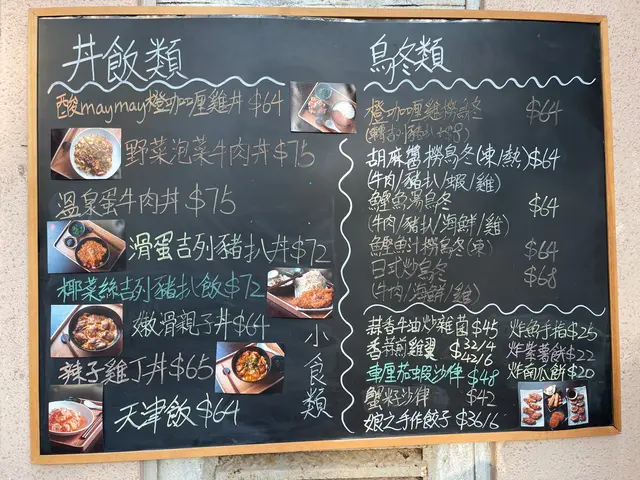 丼飯類
酸maymay橙咖喱雞丼 $64
野菜泡菜牛肉丼 $75
溫泉蛋牛肉丼 $75
滑蛋吉列豬扒丼 $72
椰菜絲吉列豬扒飯 $72
嫩滑親子丼 $64
辣子雞丁丼 $65
天津飯 $64
烏冬類
橙咖喱雞撈烏冬 $64
胡麻醬撈烏冬(凍/熱) $64
(牛肉/豬扒/蝦/雞)
鰹魚湯烏冬 $64
(牛肉/豬扒/海鮮/雞)
鰹魚汁撈烏冬(凍) $64
日式炒烏冬 $68
(牛肉/海鮮/雞)
小食類
蒜香牛油炒雜菌 $45
香蒜煎雞翼 $32/4
$42/6
車厘茄蝦沙律 $48
蟹籽沙律 $42
娘之手作餃子 $36/6
炸魚手指 $25
炸紫薯餅 $22
炸南瓜餅 $20